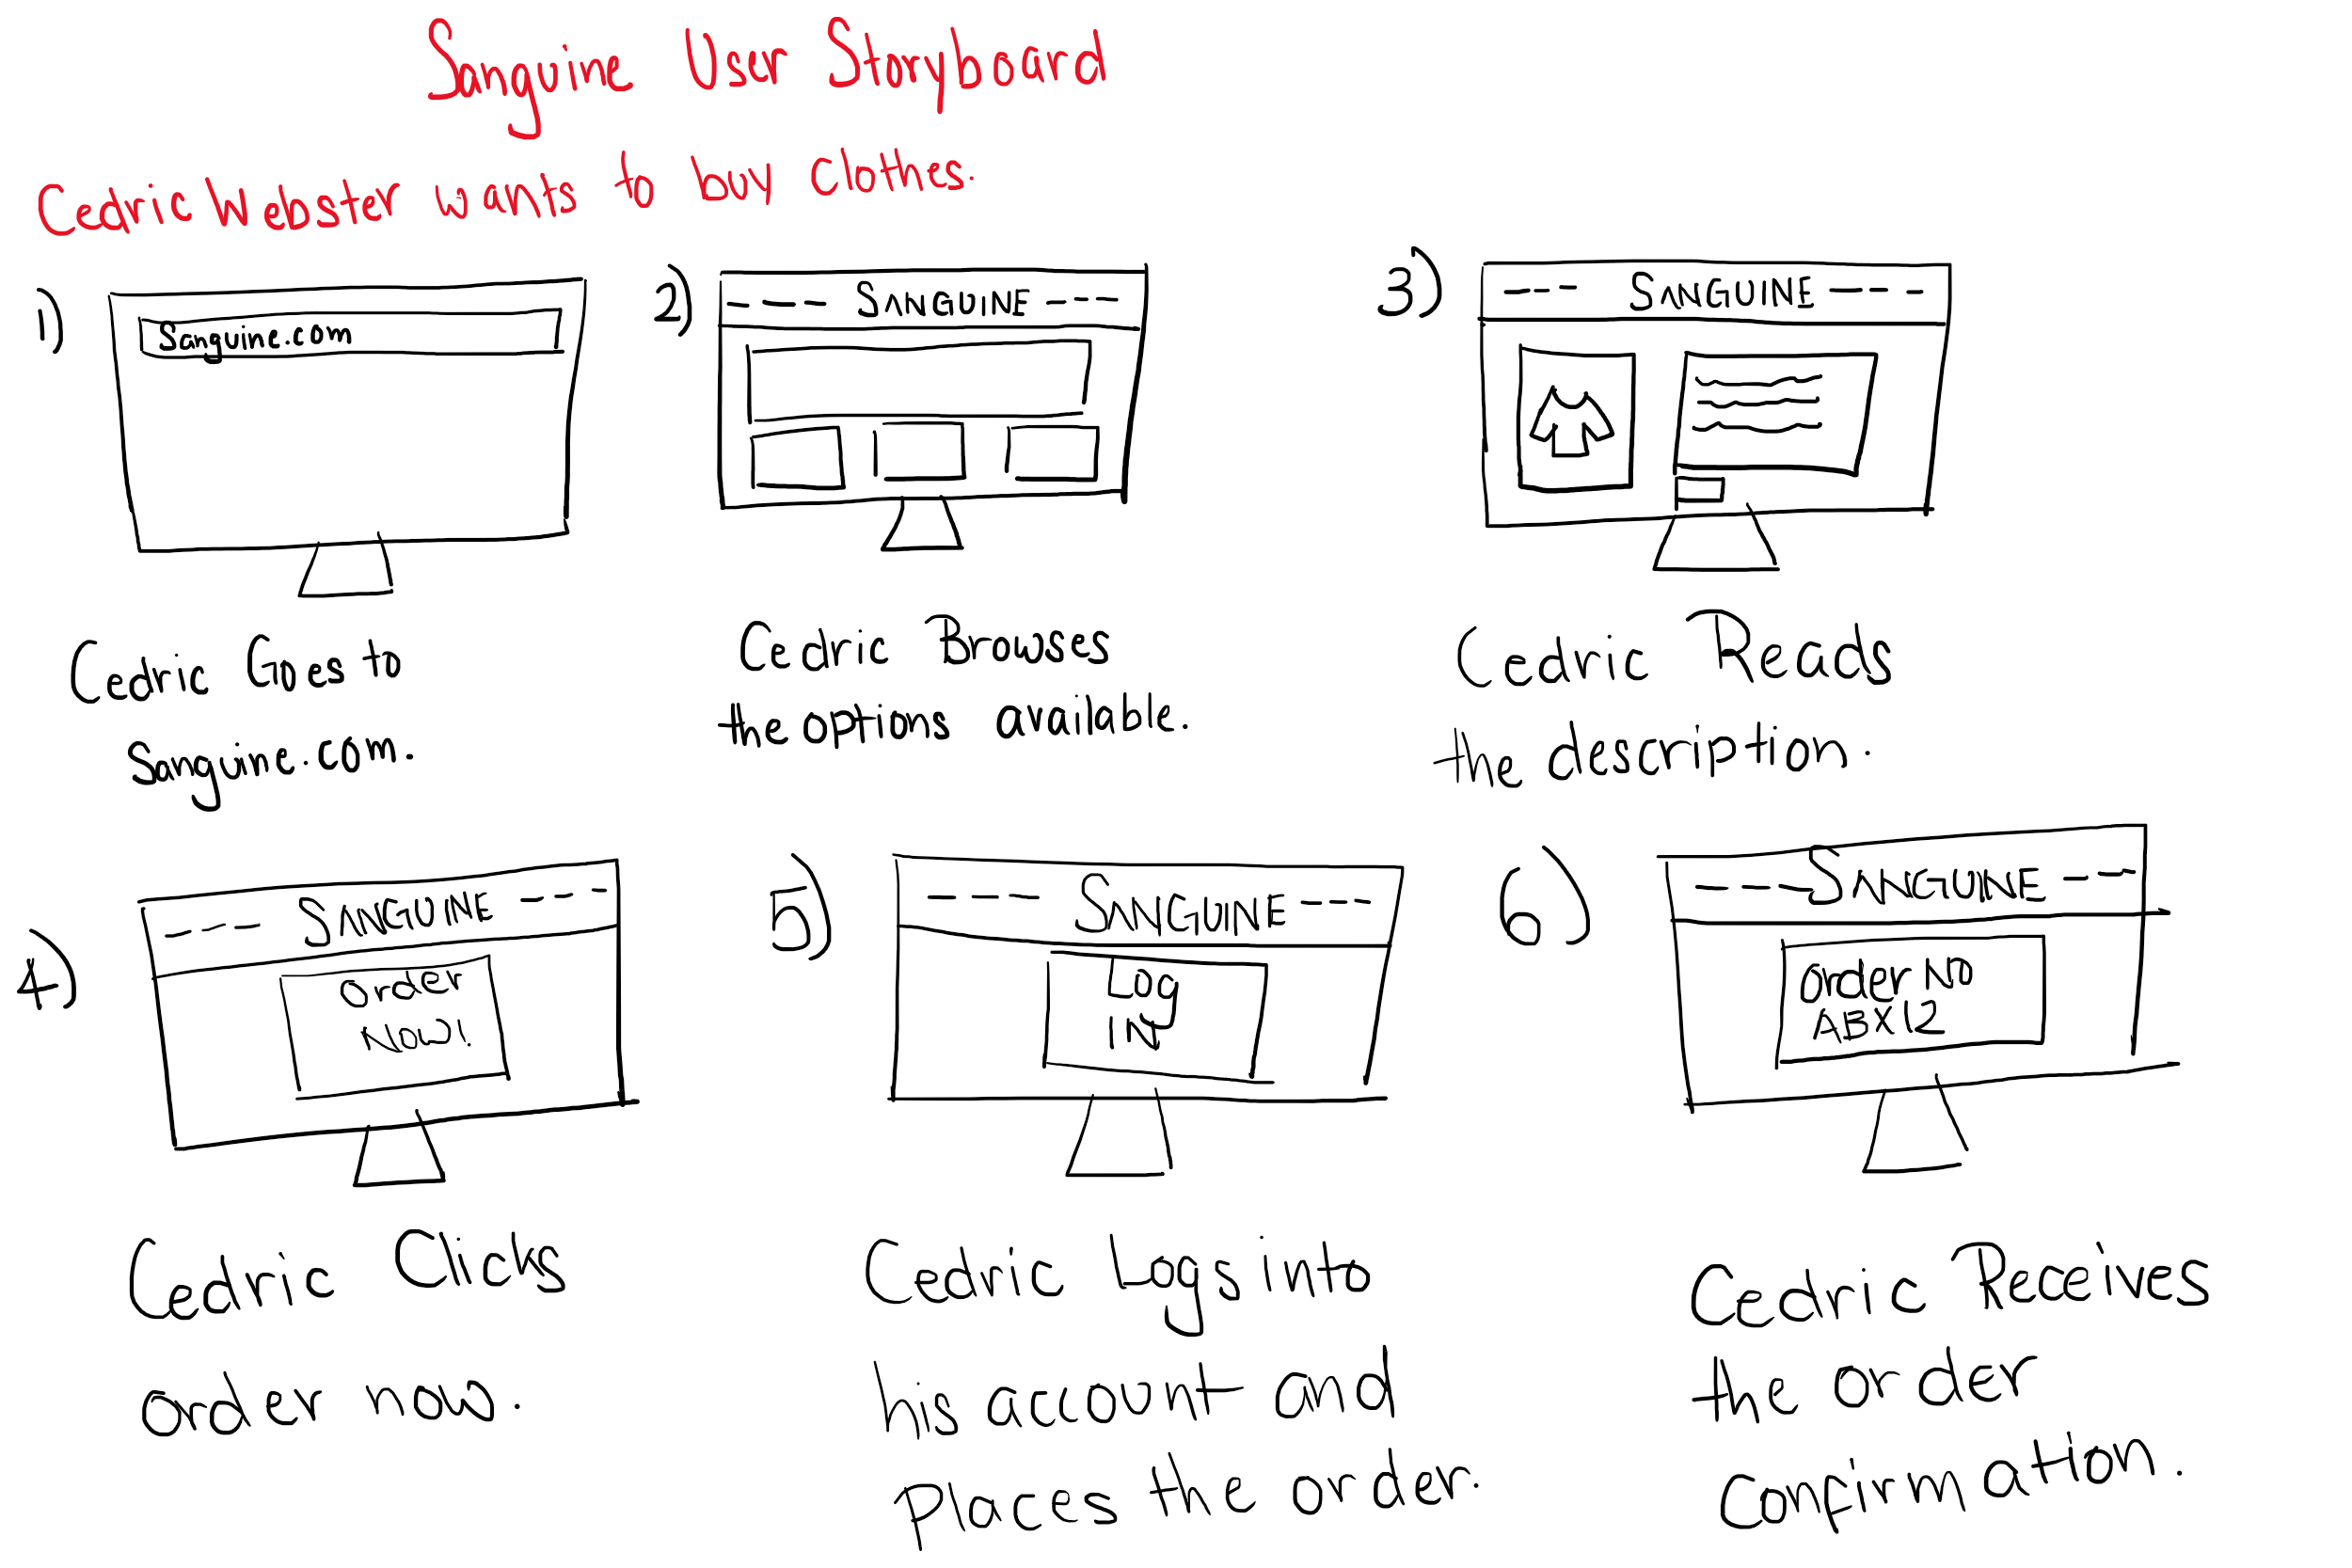 Sanguine User Storyboard
Cedric Webster wants to buy clothes.
1)
Sanguine.com
Cedric Goes to
Sanguine.com.
2)
SANGUINE
Cedric Browses
the options available.
3)
SANGUINE
Cedric Reads
the description.
4)
SANGUINE
Order
Now!
Cedric Clicks
order now.
5)
SANGUINE
LOG
IN
Cedric Logs into
his account and
places the order.
6)
SANGUINE
Order NO
ABX12
Cedric Receives
the order
confirmation.